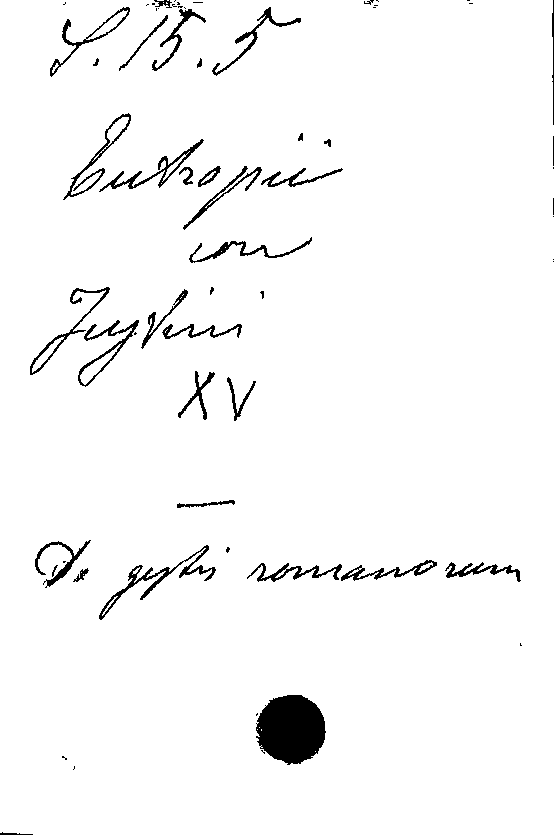 S. 15. 5
Eutropii
con
Justini
XV
—
De gestis romanorum